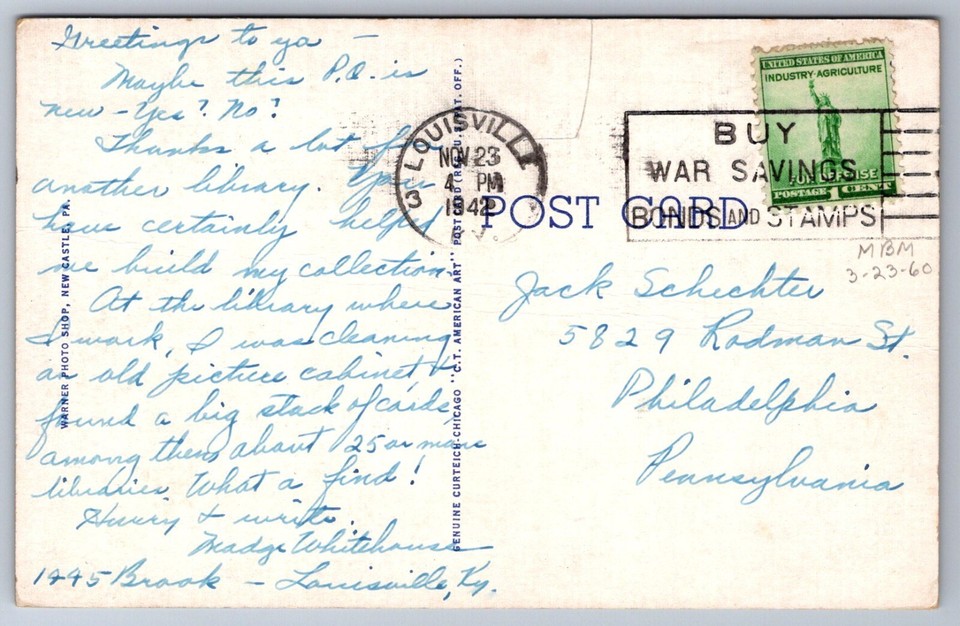 Greetings to ya —
Maybe this P.O. is
new - Yes? No?
Thanks a lot for
another library. You
have certainly helped
me build my collection.
At the library where
I work, I was cleaning
an old picture cabinet, +
found a big stack of cards
among them about 25 or more
libraries. What a find!
Hurry & write.
Madge Whitehouse
1445 Brook — Louisville, Ky.
WARNER PHOTO SHOP, NEW CASTLE, PA.
GENUINE CURTEICH-CHICAGO "C.T. AMERICAN ART" POST CARD (REG. U.S. PAT. OFF.)
LOUISVILLE
NOV 23
4 PM
1942
3
BUY
WAR SAVINGS
BONDS AND STAMPS
UNITED STATES OF AMERICA
INDUSTRY·AGRICULTURE
POSTAGE 1 CENT
POST CARD
MBM
3-23-60
Jack Schechter
5829 Rodman St.
Philadelphia
Pennsylvania